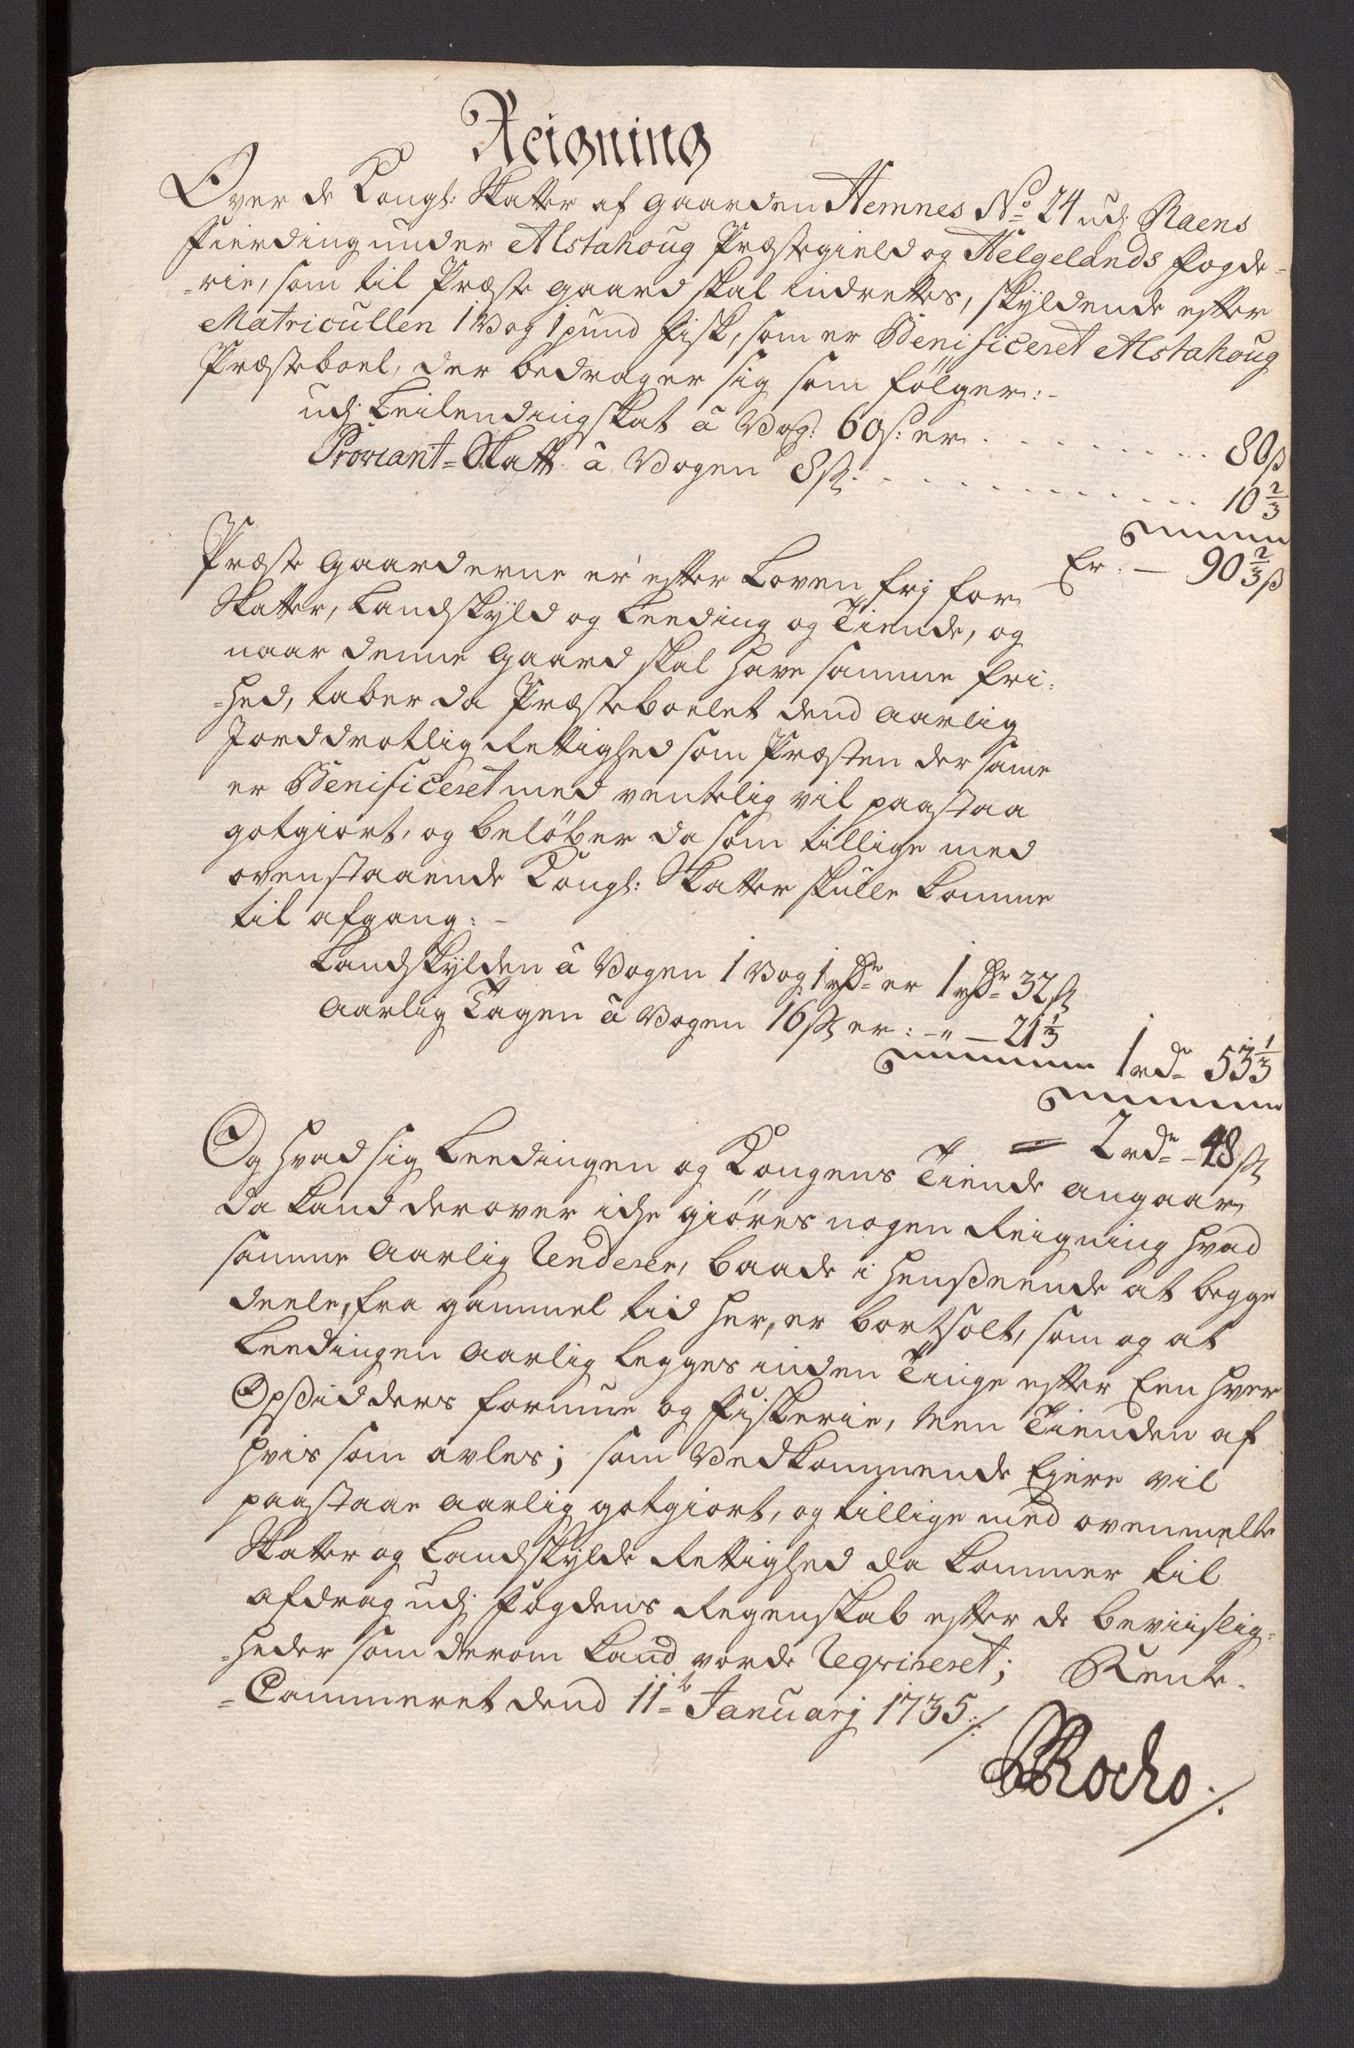 Reigning
Over de Kongl: Skatter af gaarden Hemnes No 24 udj Raens
Fierding under Alstahoug Præstegield og Helgelands fogde-
-rie, som til Præste gaard skal indrettes, skyldende efter
Matricullen 1 Vog 1 pund fisk, som er Benificeret Alstahoug
Præsteboel, der bedrager sig som følger:-
udj Leilendingskat â Vog: 60 s: er . . . . . . . . 80 ß
Proviant-Skatt â Vogen 8 ß . . . . . . . . 10 2/3
Er - 90 2/3 ß
Præste Gaarderne er efter Loven frj for
Skatter, Landskyld og Leeding og Tiende, og
naar denne Gaard skal have samme fri-
-hed, taber da Præsteboelet dend Aarlig
Jorddrotlig Rettighed som Præsten der same
er Benificeret med ventelig vil paastaa
gotgiort, og beløber da som tillige med
ovenstaaende Kongl: Skatter skulle komme
til afgang:-
Landskylden â Vogen 1 Vog 1 rdr er 1 rdr 32 ß
Aarlig Tagen â Vogen 16 ß er: -„- 21 1/3
1 rdr 53 1/3
= 2 rdr - 48 ß
Og hvad sig Leedingen og Kongens Tiende angaar,
da kand derover icke giøres nogen Reigning hvad
samme Aarlig Renderer, baade i henseende at begge
deele, fra gammel tid her, er bortsolt, som og at
Leedingen Aarlig legges inden Tinge efter Een hver
Opsidders formue og fiskerie, Men Tienden af
hvis som avles; som Vedkommende Ejere vil
paastaae Aarlig gotgiort, og tillige med ovenmelte
Skatter og Landskylds Rettighed da kommer til
afdrag udj Fogdens Regenskab efter de beviislig-
-heder som derom kand vorde Reqvireret; Rente-
-Cammeret dend 11te Januarj 1735./.
Rocho./.